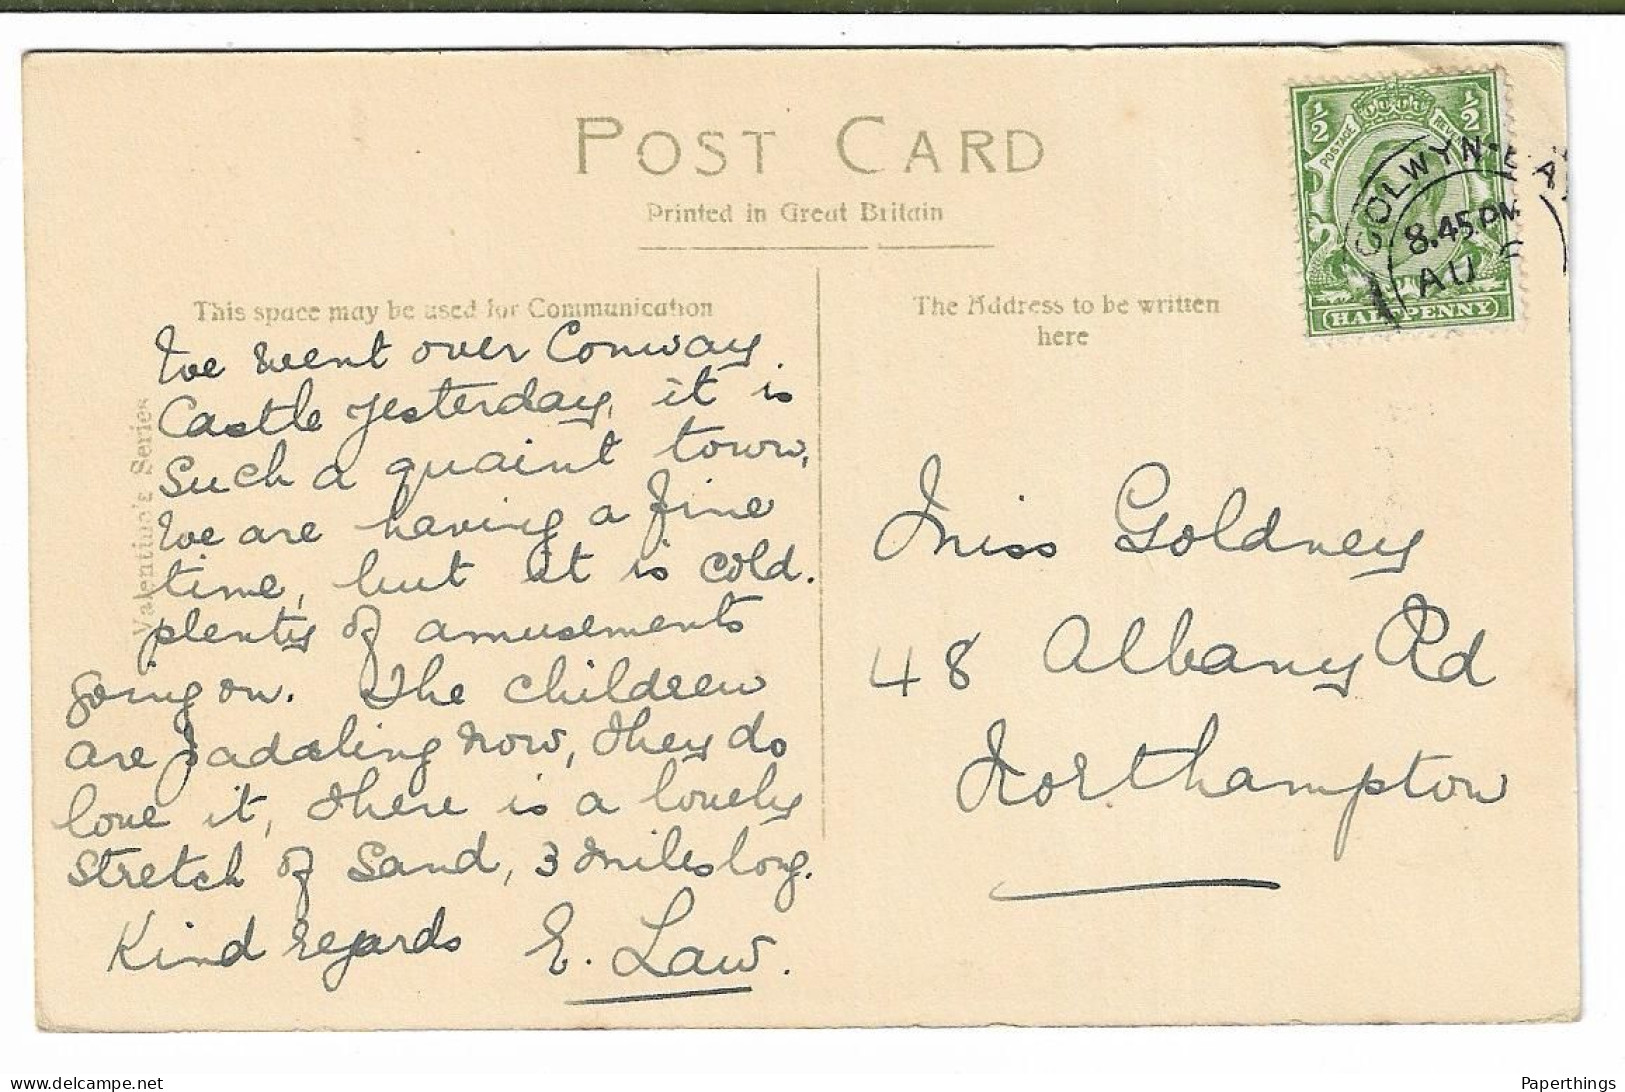 POST CARD
Printed in Great Britain
This space may be used for Communication
The Address to be written
here
Valentine's Series
1/2 1/2
POSTAGE
HALFPENNY
COLWYN-BA
8.45 PM
AU
We went over Conway
Castle yesterday, it is
Such a quaint town,
We are having a fine
time, but it is cold.
plenty of amusements
going on. The children
are paddling now, they do
love it, there is a lovely
Stretch of Sand, 3 miles long.
Kind regards E. Law.
Miss Goldney
48 Albany Rd
Northampton
delcampe.net
Paperthings